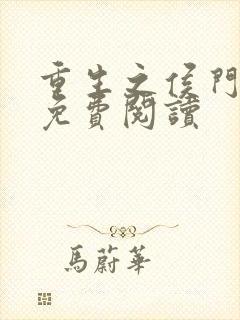 重生之侯門
免費閱讀
馬蔚華